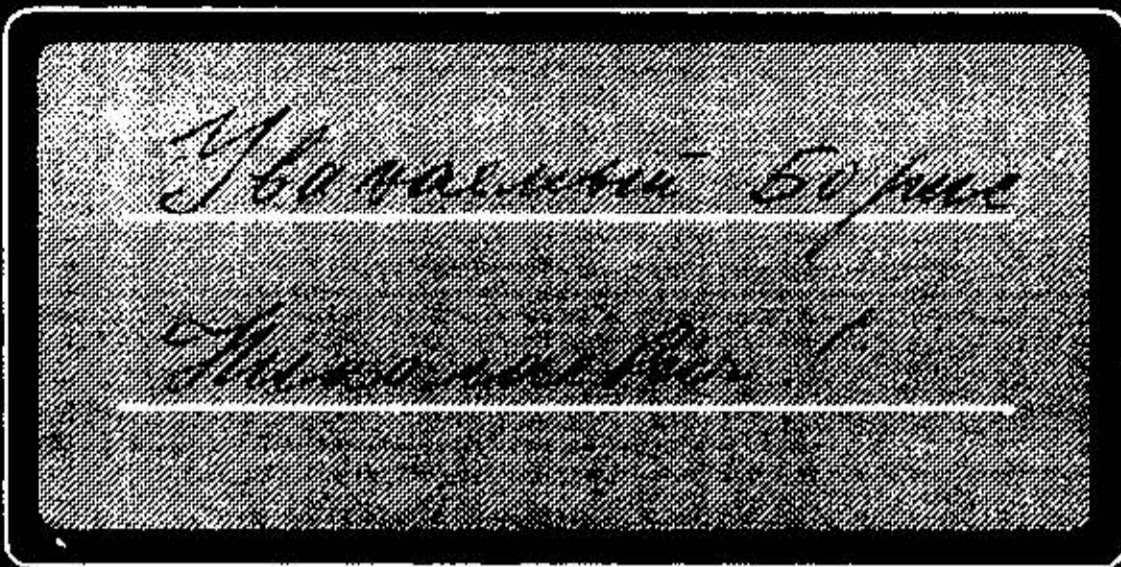 Уважаемый Борис
Николаевич!